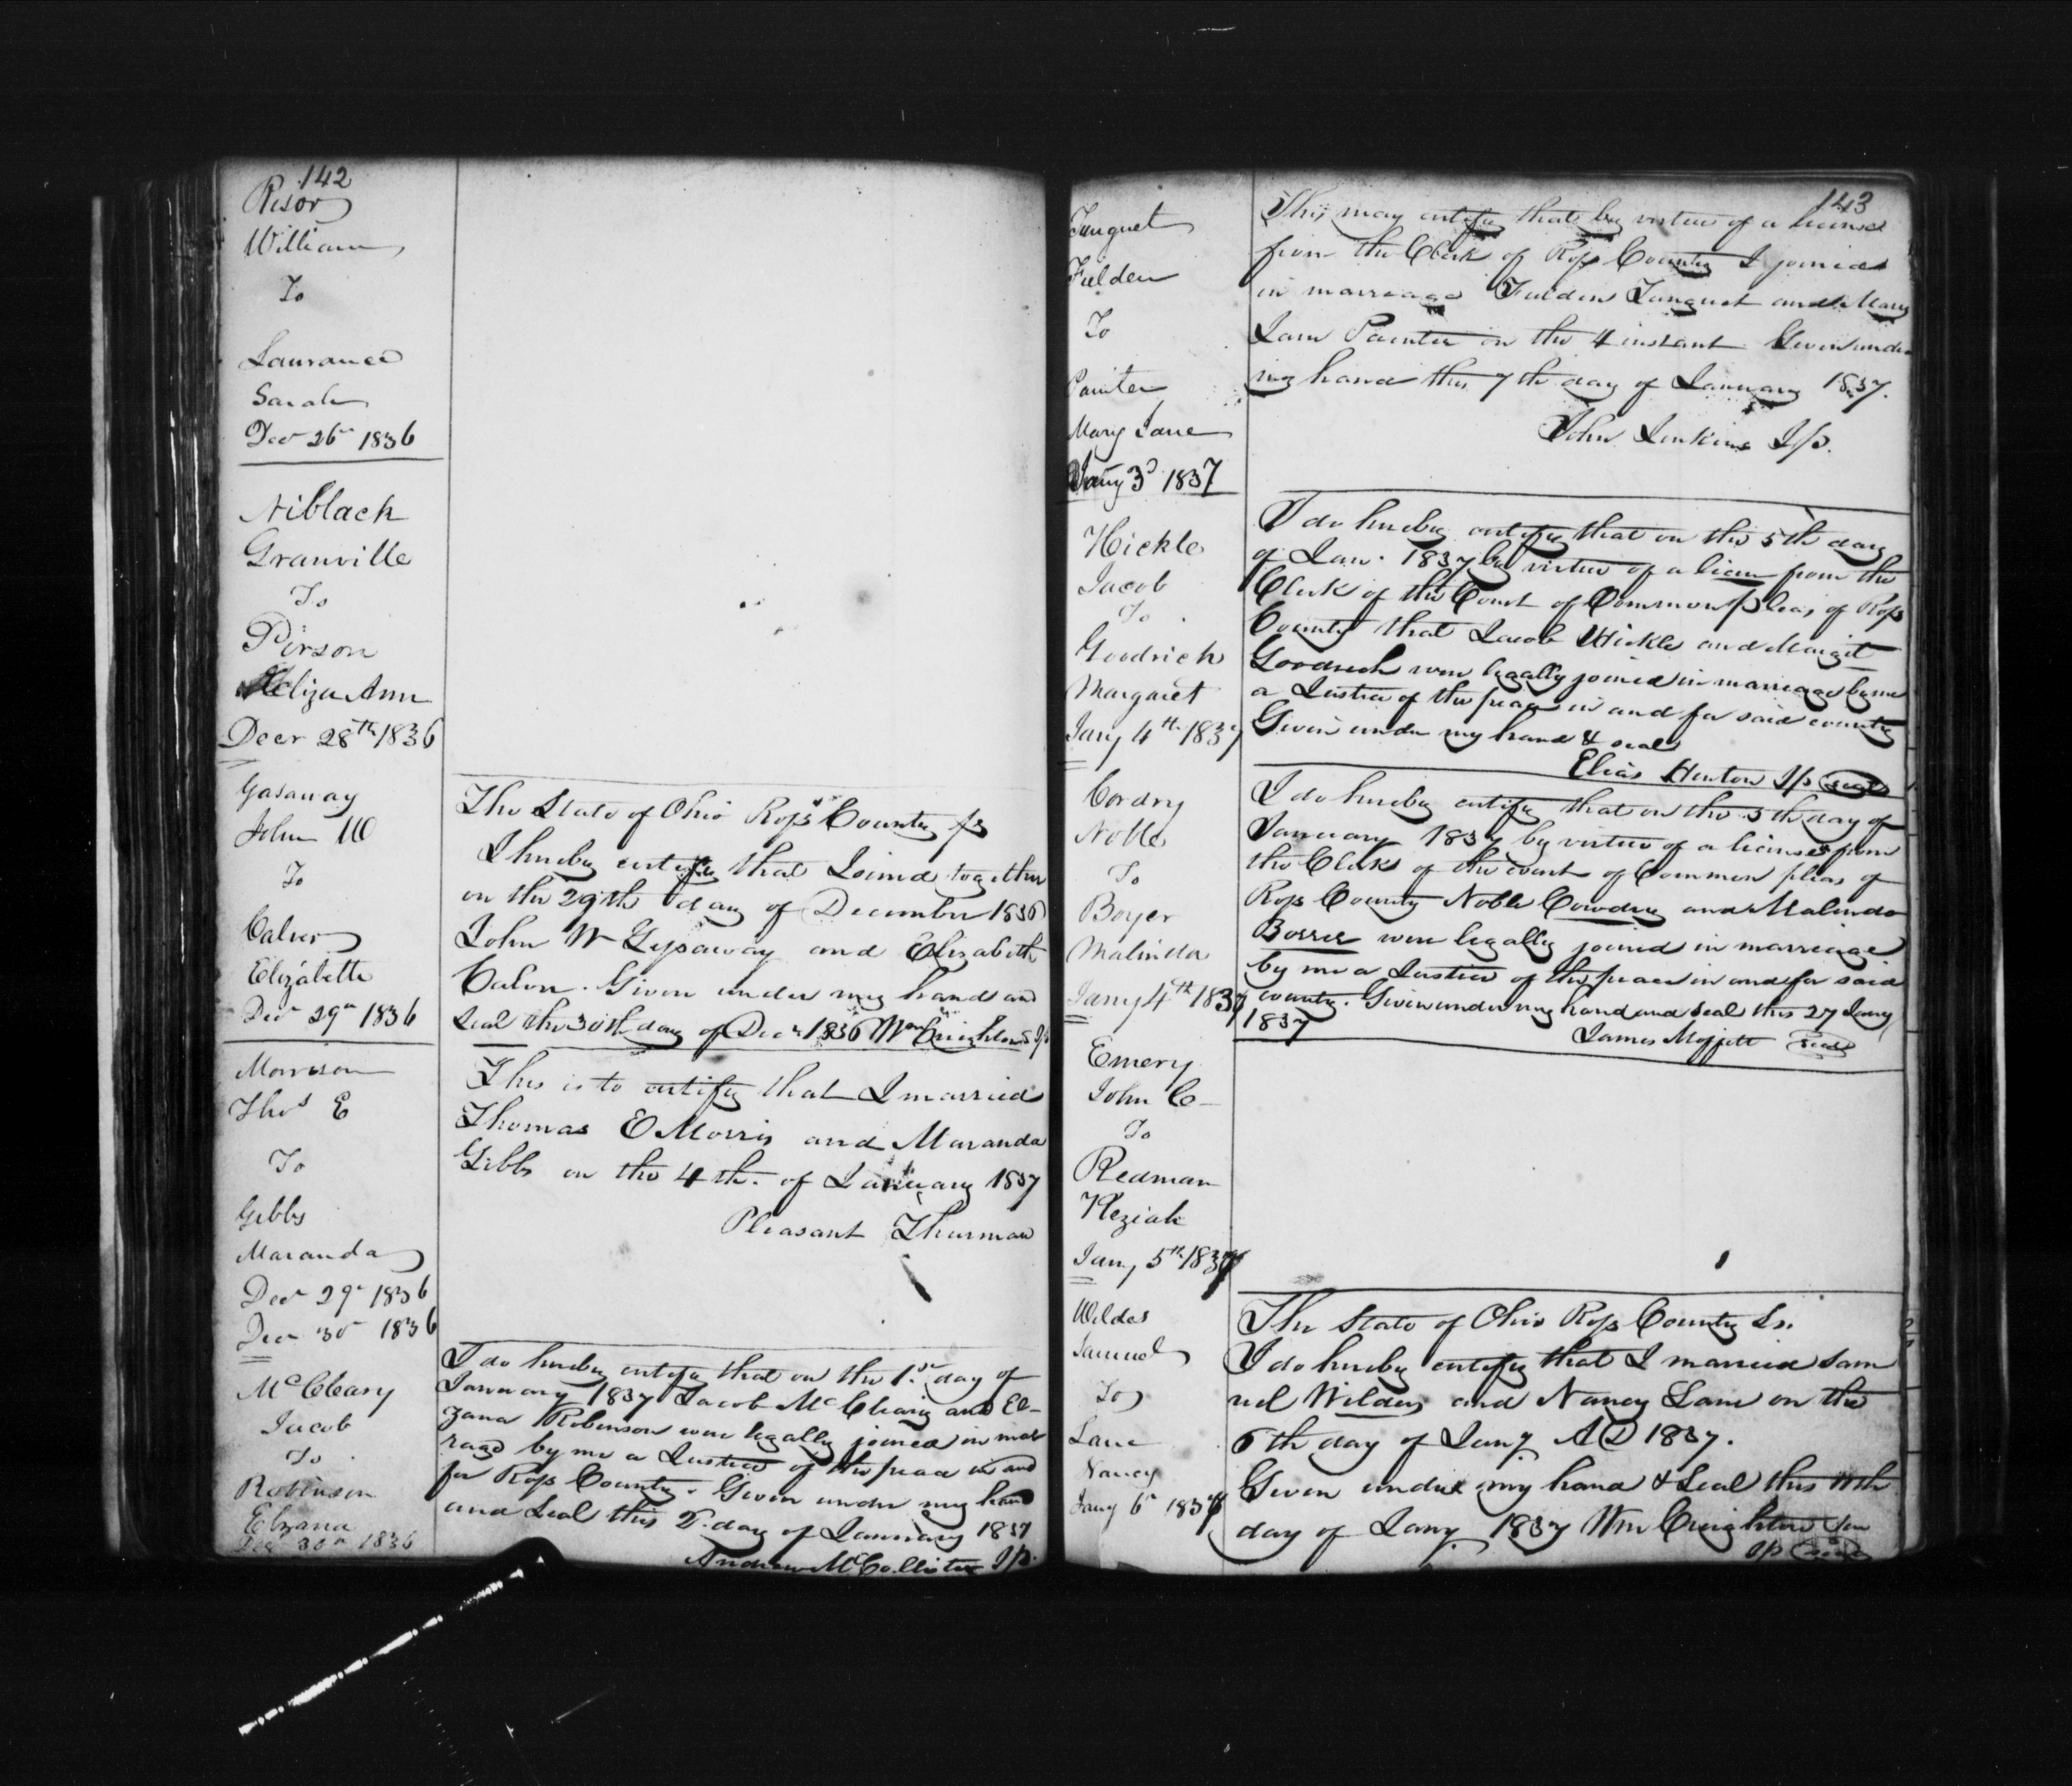 142
Risor
William
To
Laurance
Sarah
Decr 26th 1836
Niblack
Granville
To
Pirson
Eliza Ann
Decr 28th 1836
Gasaway
John W
To
Calver
Elizabeth
Decr 29th 1836
The State of Ohio Ross County ss
I hereby certify that I joined together
on the 29th day of December 1836
John W Gipsaway and Elisabeth
Calvon. Given under my hand and
seal the 30th day of Decr 1836 Wm Creighton Jp
Morrison
Thos E
To
Gibbs
Maranda
Decr 29th 1836
Decr 30th 1836
This is to certify that I married
Thomas E Morris and Maranda
Gibbs on the 4th. of January 1837
Pleasant Thurman
McCleary
Jacob
To
Robinson
Elzana
Decr 30th 1836
I do hereby certify that on the 1st day of
January 1837 Jacob McCleary and El-
zana Robinson were legally joined in mar
rage by me a Justice of the peace in and
for Ross County. Given under my hand
and Seal this 2. day of January 1837
Andrew McCollister Jp.
143
Tanguet
Fielden
To
Painter
Mary Jane
Jany 3d 1837
This may certify that by virtue of a license
from the Clerk of Ross County I joined
in marreage Fielden Tanguet and Mary
Jane Painter on the 4 instant Given under
my hand this 7th day of January 1837.
John Jenkins Jp.
Hickle
Jacob
To
Goodrich
Margaret
Jany 4th 1837
I do hereby certify that on the 5th day
of Jan. 1837 by virtue of a licen from the
Clerk of the Court of Common pleas of Ross
County that Jacob Hickle and Margit
Goodrich were legally joined in marreage by me
a Justice of the peace in and for said county
Given under my hand & seal
Elias Hinton Jp seal
Cordry
Noble
To
Boyer
Malinda
Jany 4th 1837
I do hereby certify that on the 5th day of
January 1837 by virtue of a license from
the Clerk of the court of Common pleas of
Ross County Noble Cowdry and Malinda
Borrer were legally joined in marreage
by me a Justice of the peace in and for said
county. Given under my hand and seal this 27 Jany
1837
James Moffitt seal
Emery
John C
To
Redman
Keziah
Jany 5th 1837
Wildes
Samuel
To
Lane
Nancy
Jany 6th 1837
The State of Ohio Ross County Ss.
I do hereby certify that I married Sam
uel Wildes and Nancy Lane on the
6th day of Jany AD 1837.
Given under my hand & Seal this 11th
day of Jany 1837 Wm Creighton Sen
Jp seal